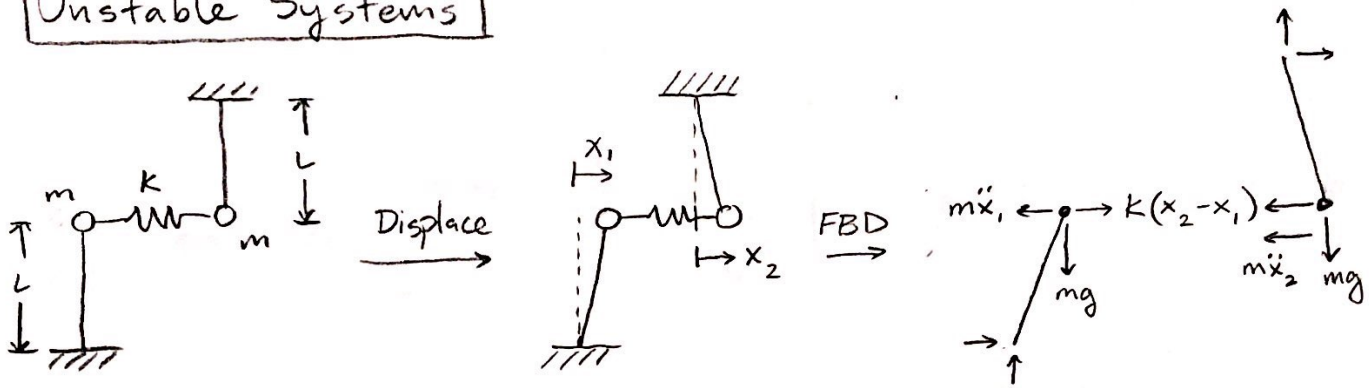 Unstable Systems
L
m
k
m
L
Displace
x₁
x₂
FBD
mẍ₁
k(x₂-x₁)
mg
mẍ₂
mg